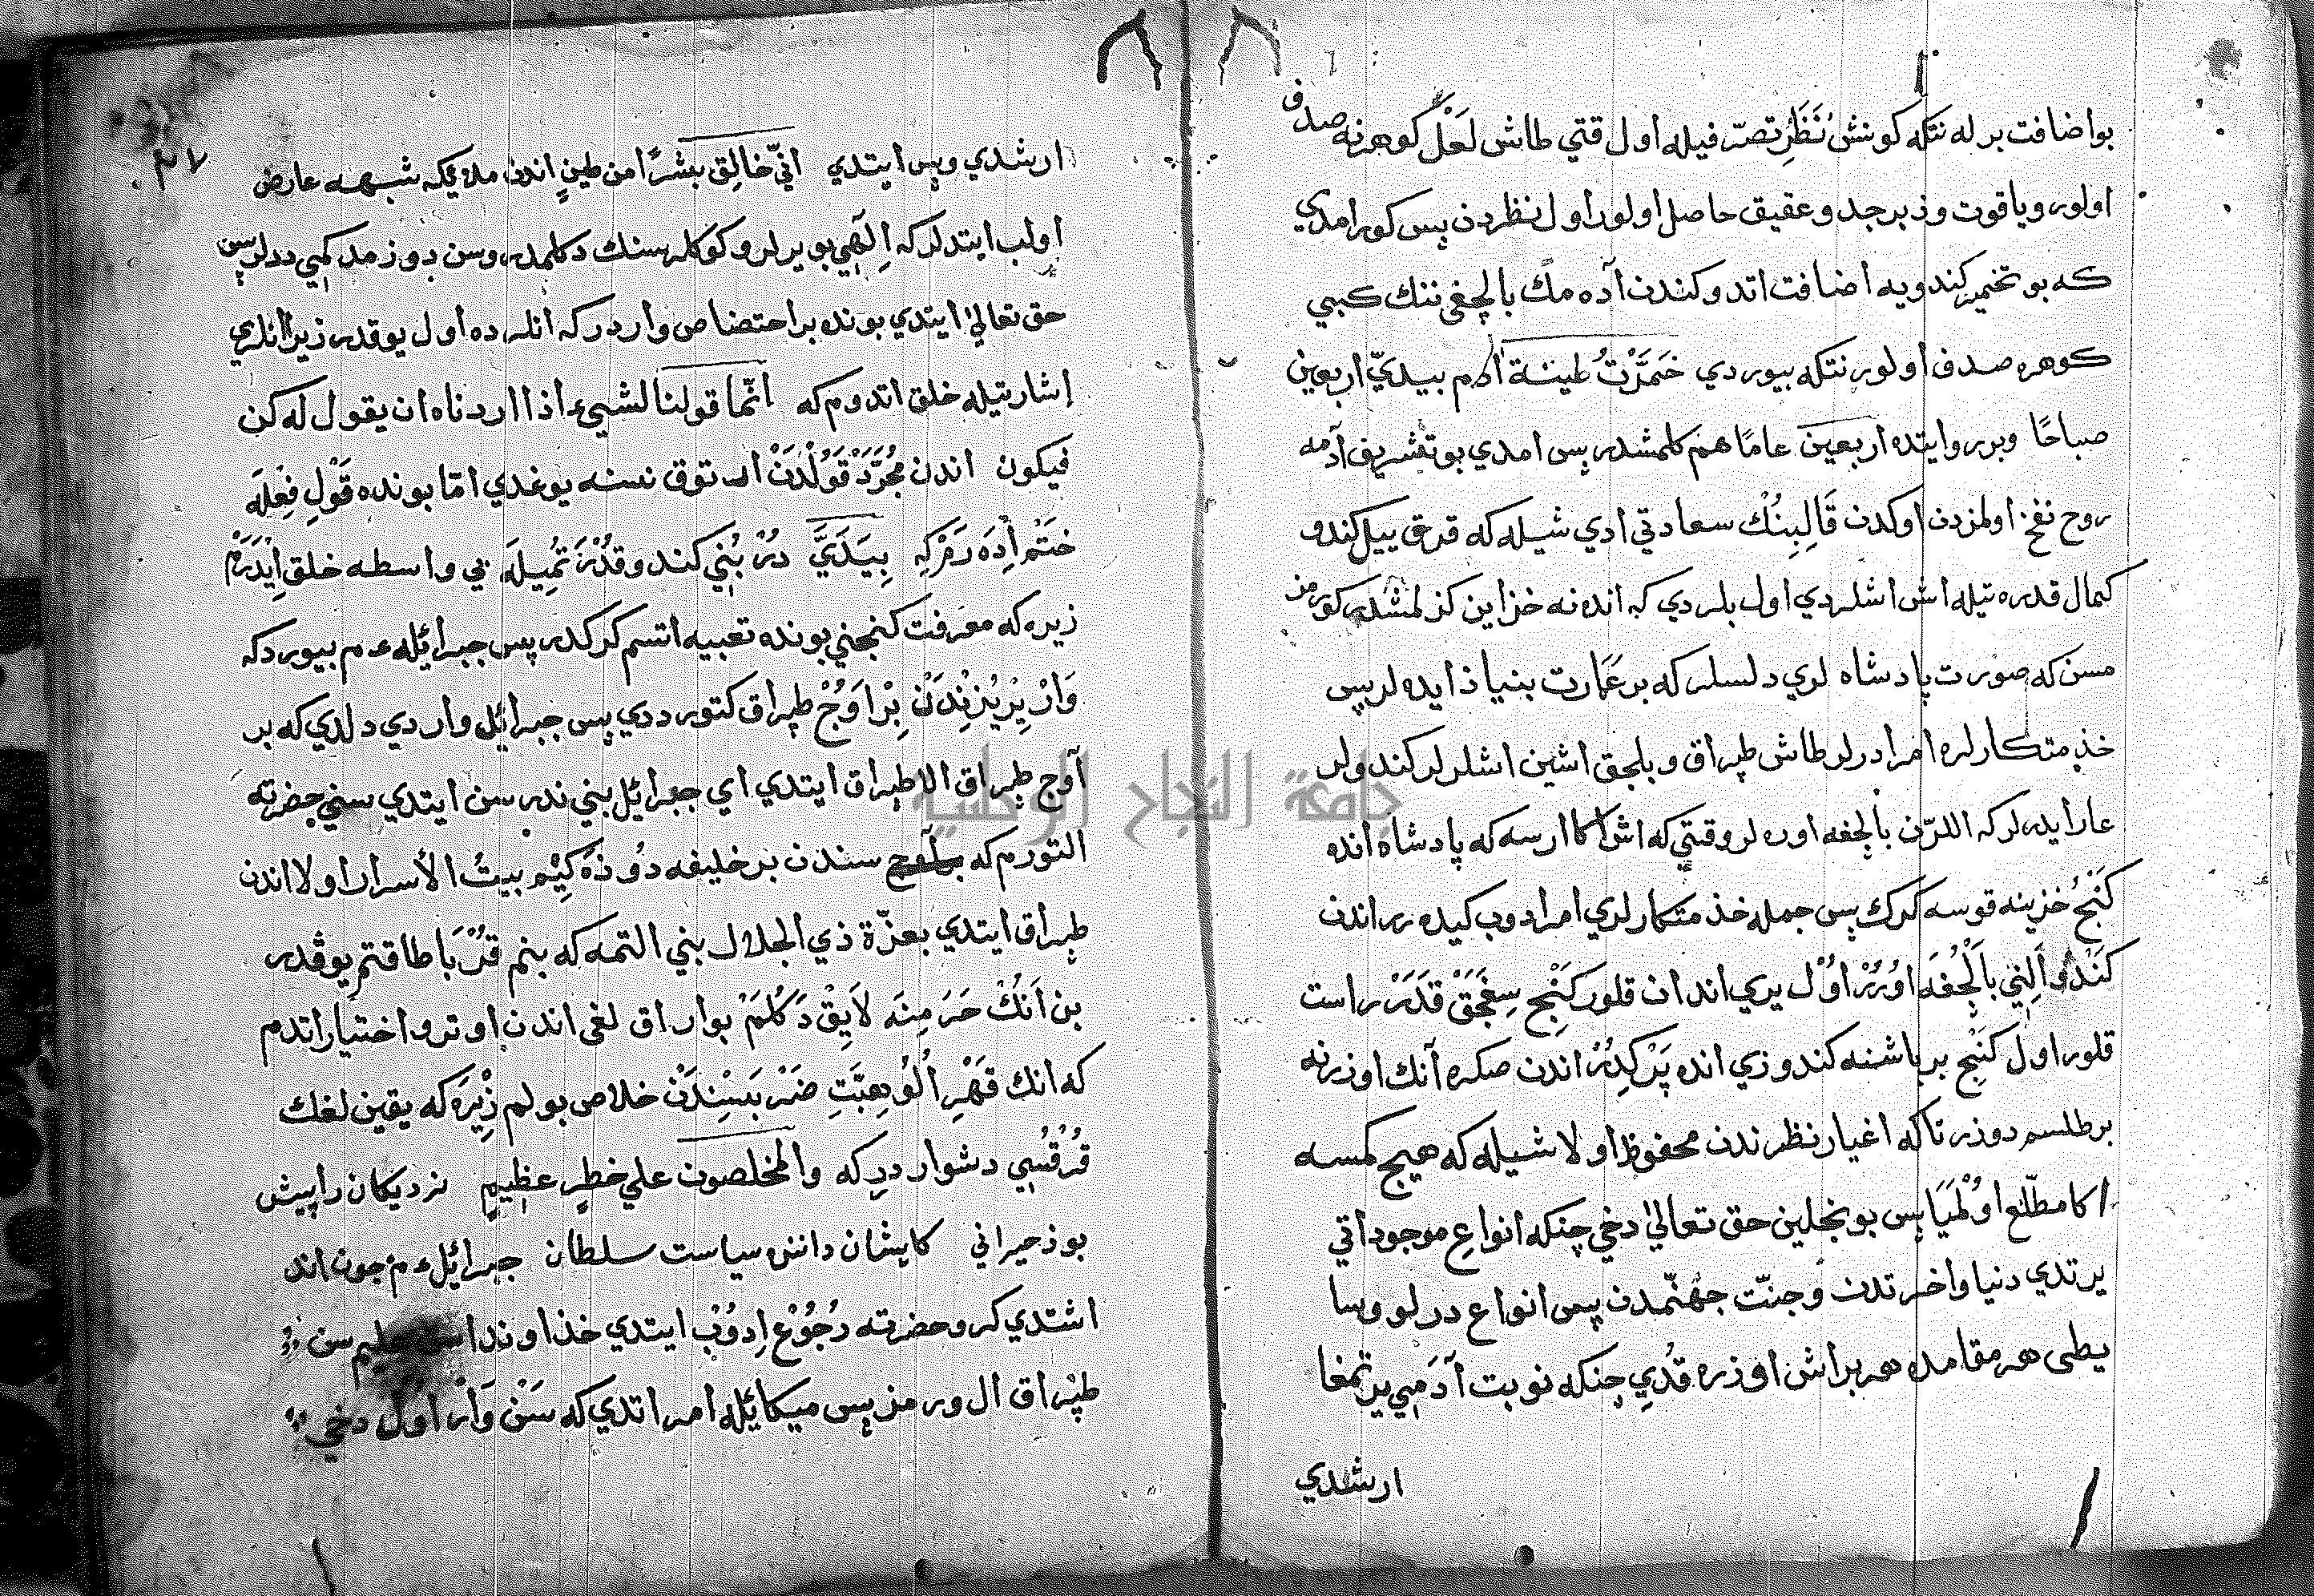 بواضافت برله نتكه كونش نَظَرِ تصرّفيله اول قتي طاش لَعْل كوهرنه صدف
اولور وياقوت وزبرجد وعقيق حاصل اولور اول نظردن پس كور امدي
كه بو تخمير كندويه اضافت اتدوكندن آدمك بالچغى ننك كبي
كوهره صدف اولور نتكه بيوردي خَمَّرْتُ طينة آدم بيديّ اربعين
صباحًا وبر روايتده اربعين عامًا هم كلمشدر پس امدي بو تشريف آدمه
روح نفخ اولمزدن اوكدن قَالِبِنُكْ سعادتي ادي شيله كه قرق ييل كندو
كمال قدرتيله اش اشلردي اول بلردي كه انده نه خزاين كزلمشدر كورمز
مسن كه صورت پادشاه لري دلسلر كه بر عمارت بنياذ ايده لر پس
خذمتكارلره امر ادرلر طاش طپراق وبلچق اشين اشلرلر كندولر
عار ايدرلر كه اللرن بالچغه اوره لر وقتي كه اش اكا ارسه كه پادشاه انده
كَنْجُ خزينه قوسه كرك پس جمله خذمتكارلري امر ادوب كيده رر اندن
كَنْدُو اَلِنِي بَالْچُغَه اوُرُرْ اوُل يري اندان قلور كَنْجِ سِغَجَقْ قَدَرْ راست
قلور اول كَنْجِ بر باشنه كندوزي انده يَرْكدُرْ اندن صكره آنك اوزرنه
بر طلسم دوزر تاكه اغيار نظرندن محفوظ اولا شيله كه هيچ كمسه
اكا مطّلع اوُلْمَيَا پس بونجلين حق تعالى دخي چنكه انواع موجوداتي
يرتدي دنيا واخرتدن وجنّت جهنّمدن پس انواع درلو وسا
يطى هر مقامده هر براش اوزره قُدِي چنكه نوبت آدمي يرتمغا
ارشدي
ارشدي وپس ايتدي انّي خالِق بَشَرًا من طينٍ اندن ملائيكه شبهه عارض
اولب ايتدلر كه اِلٓهِي بو يرلر وكوكلر سنك دكلمدر وسن دوزمدكمي ددلر پس
حق تعالى ايتدي بونده بر احتضاص واردر كه انلرده اول يوقدر زيرا انلري
إشارتيله خلق اتدوم كه انّما قولنا لشيء اذا اردناه ان يقول له كن
فيكون اندن مُجَرَّدْ قَوْلْدَنْ ارتوق نسنه يوغدي امّا بونده قَوْلِ فِعْلَه
ختم اِدَه رَمْ كِه بِيَدَيَّ دُرْ بُنِي كندو قدْرَتُمِيلَه بي واسطه خلق اِيْدَرَمْ
زيره كه معرفت كنجني بونده تعبيه اتسم كركدر پس جبرائله ع م بيوردكه
وَارْ يِرْيُزِنْدَنْ بِرْ اَوُجْ طپراق كتور ددي پس جبرائل واردي دلدي كه بر
آوج طپراق الا طپراق ايتدي اي جبرائل بني ندرسن ايتدي سني حضرته
التورم كه سندن بر خليفه دُوزَه كِيْم بيتُ الأسرار اولا اندن
طپراق ايتدي بعزّة ذي الجلال بني التمه كه بنم قُرْبَا طاقتم يوقدر
بن اَنُكْ حَرَمِنَه لاَيِقْ دَكُلَمْ بو ايراق لغى اندن اوترو اختيار اتدم
كه انك قَهْرِ اُلُوهِيَّتِ ضَرْبَسِنْدَنْ خلاص بولم زِيْرَه كه يقين لغك
قُرْقُسِي دشوار دركه والمخلصون علي خطر عظيم نزديكان را پيش
بوذ حيراني كايشان دانند سياست سلطان جبرائل ع م جون اند
اشتدي كرو حضرته رُجُوْع اِدُوْب ايتدي خذاوندا سن عليم سن
طپراق ال ورمز پس ميكائله امر اتدي كه سَنْ وَارْ اول دخي
جامعة النجاح الوطنية